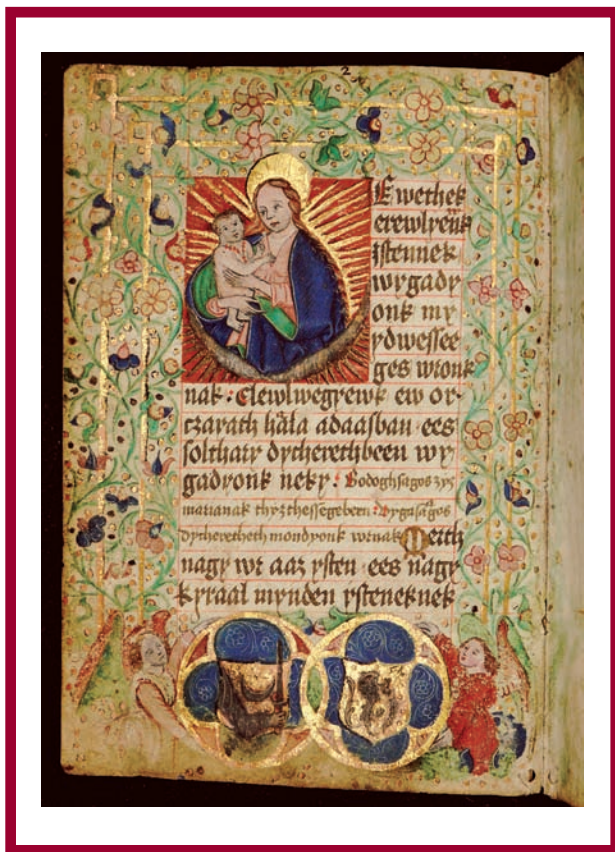 2
Ewethek
erewlyenk
Istennek
wygady
onk my
ydwessee
ges wronk
nak : Elewlwegrewk ew or-
czarath hála adaasban ees
soltharr dycherethbeen wy
gadyonk neky : Bodoghsagos zyz
marianak thyzthessegebeen :
dycheretheth mondyonk wrnak Merth
nagy wr aaz ysten ees nagy
kyraal mynden ysteneknek